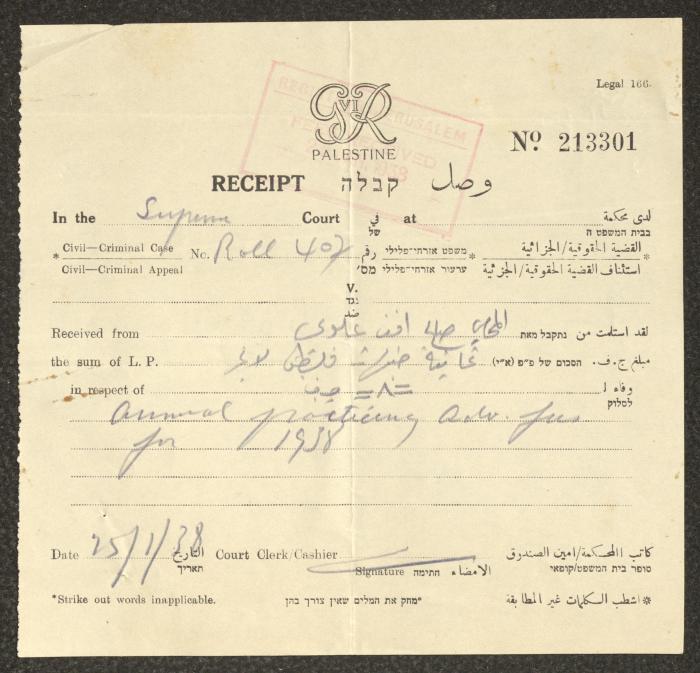 Legal 166.
G VI R
PALESTINE
Nº 213301
RECEIPT קבלה وصل
In the Supreme Court في at لدى محكمة
של בבית המשפט ה
* Civil—Criminal Case No. Roll 407 رقم משפט אזרחי־פלילי القضية الحقوقية/الجزائية *
Civil—Criminal Appeal מס' ערעור אזרחי־פלילי استئناف القضية الحقوقية/الجزئية
V.
נגד
ضد
Received from المحامي افندي علوي לقد استلمت من נתקבל מאת
the sum of L.P. ثمانية جنيهات فلسطيني لا غير מبلغ ج. ف. הסכום של פ"פ (א"י)
in respect of =٨= جنيه وفاء ל
לסלוק
Annual practicing Adv. fees
for 1938
Date 25/1/38 التاريخ Court Clerk/Cashier كاتب المحكمة/امين الصندوق
תאריך Signature חתימה الامضاء סופר בית המשפט/קופאי
*Strike out words inapplicable. *מחק את המלים שאין צורך בהן * اشطب الكلمات غير المطابقة